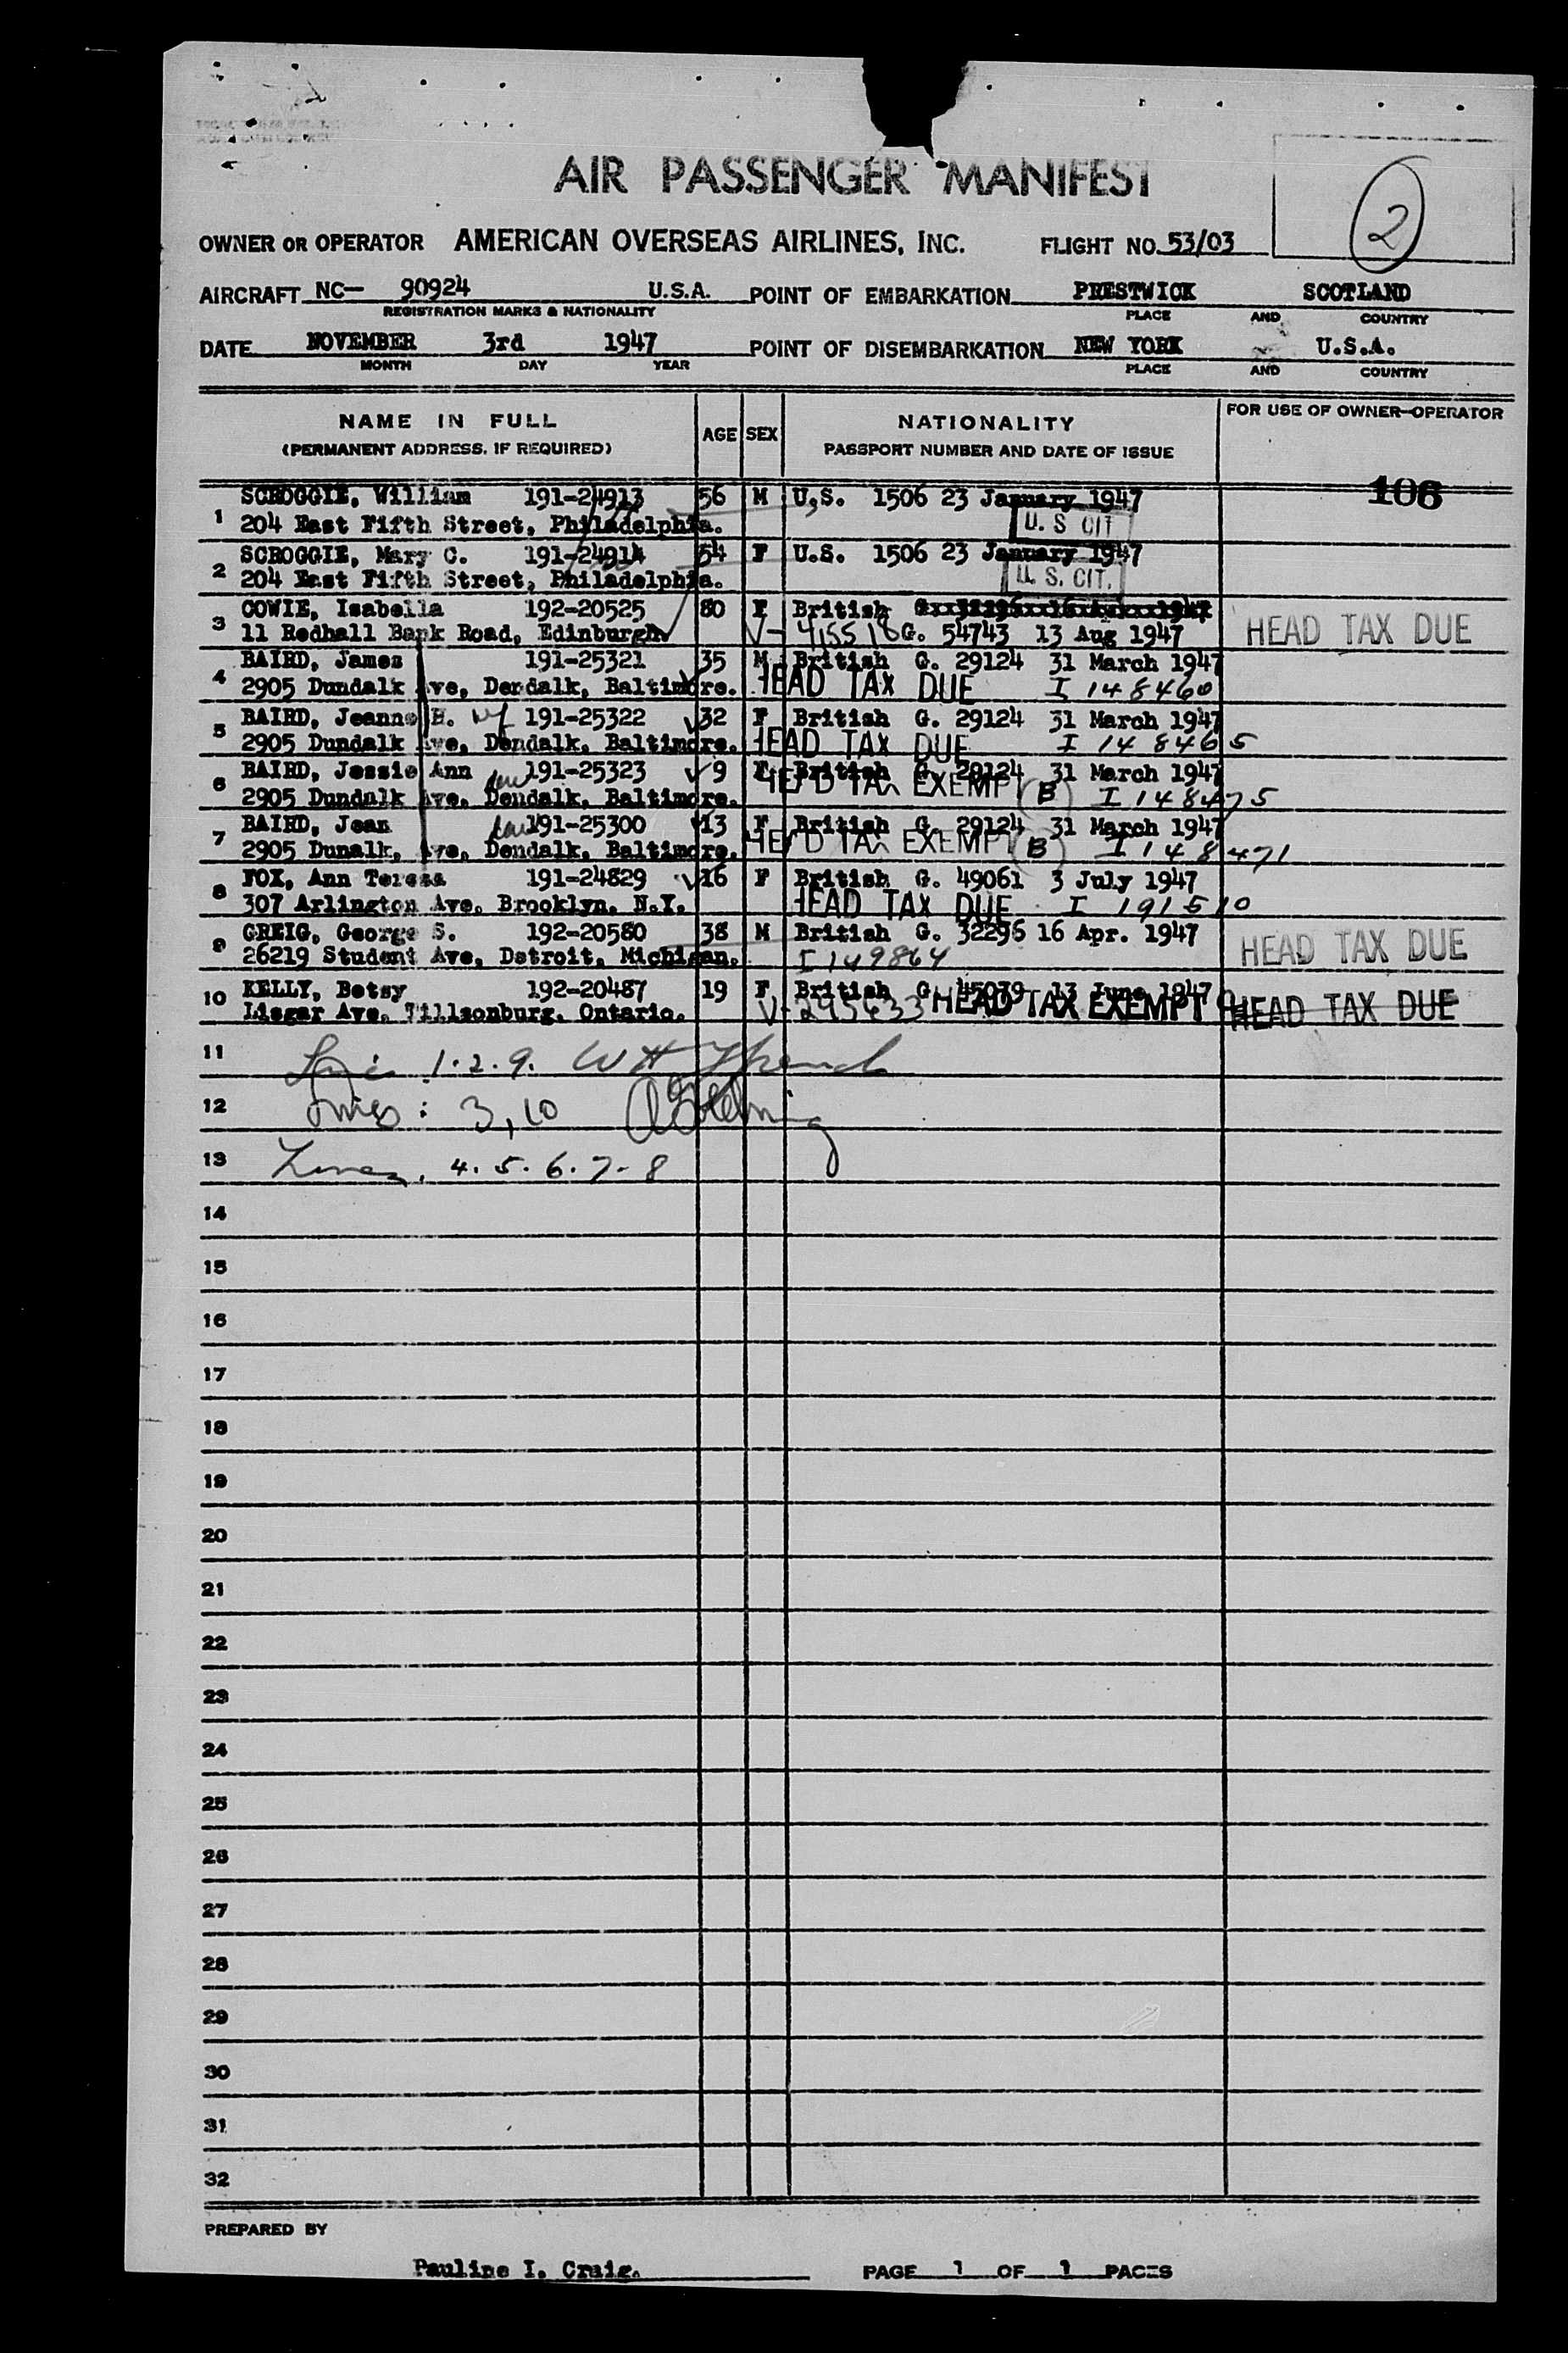 AIR PASSENGER MANIFEST
2
OWNER OR OPERATOR AMERICAN OVERSEAS AIRLINES, INC. FLIGHT NO. 53/03
AIRCRAFT NC— 90924 U.S.A. POINT OF EMBARKATION PRESTWICK SCOTLAND
REGISTRATION MARKS & NATIONALITY PLACE AND COUNTRY
DATE NOVEMBER 3rd 1947 POINT OF DISEMBARKATION NEW YORK U.S.A.
MONTH DAY YEAR PLACE AND COUNTRY
NAME IN FULL AGE SEX NATIONALITY FOR USE OF OWNER-OPERATOR
(PERMANENT ADDRESS, IF REQUIRED) PASSPORT NUMBER AND DATE OF ISSUE
106
1 SCROGGIE, William 191-24913 56 M U.S. 1506 23 January 1947
204 East Fifth Street, Philadelphia. U. S CIT
2 SCROGGIE, Mary C. 191-24914 54 F U.S. 1506 23 January 1947
204 East Fifth Street, Philadelphia. U. S. CIT.
3 COWIE, Isabella 192-20525 80 F British
11 Redhall Bank Road, Edinburgh V- 415518 G. 54743 13 Aug 1947 HEAD TAX DUE
4 BAIRD, James 191-25321 35 M British G. 29124 31 March 1947
2905 Dundalk Ave, Dendalk, Baltimore. HEAD TAX DUE I 148460
5 BAIRD, Jeanne H. wf 191-25322 32 F British G. 29124 31 March 1947
2905 Dundalk Ave, Dendalk, Baltimore. HEAD TAX DUE I 148465
6 BAIRD, Jessie Ann dau 191-25323 9 F British G. 29124 31 March 1947
2905 Dundalk Ave. Dendalk, Baltimore. HEAD TAX EXEMPT (B) I 148475
7 BAIRD, Jean dau 191-25300 13 F British G. 29124 31 March 1947
2905 Dunalk, Ave, Dendalk, Baltimore. HEAD TAX EXEMPT (B) I 148471
8 FOX, Ann Teresa 191-24829 16 F British G. 49061 3 July 1947
307 Arlington Ave. Brooklyn. N.Y. HEAD TAX DUE I 191510
9 GREIG, George S. 192-20580 38 M British G. 32296 16 Apr. 1947
26219 Student Ave, Detroit, Michigan. I 149864 HEAD TAX DUE
10 KELLY, Betsy 192-20487 19 F British G. 45039 13 June 1947
Lisgar Ave. Tillsonburg. Ontario. V-295633 HEAD TAX EXEMPT HEAD TAX DUE
11 1. 2. 9. W H
12 Lines: 3, 10
13 Lines, 4. 5. 6. 7. 8
14
15
16
17
18
19
20
21
22
23
24
25
26
27
28
29
30
31
32
PREPARED BY
Pauline I. Craig. PAGE 1 OF 1 PAGES